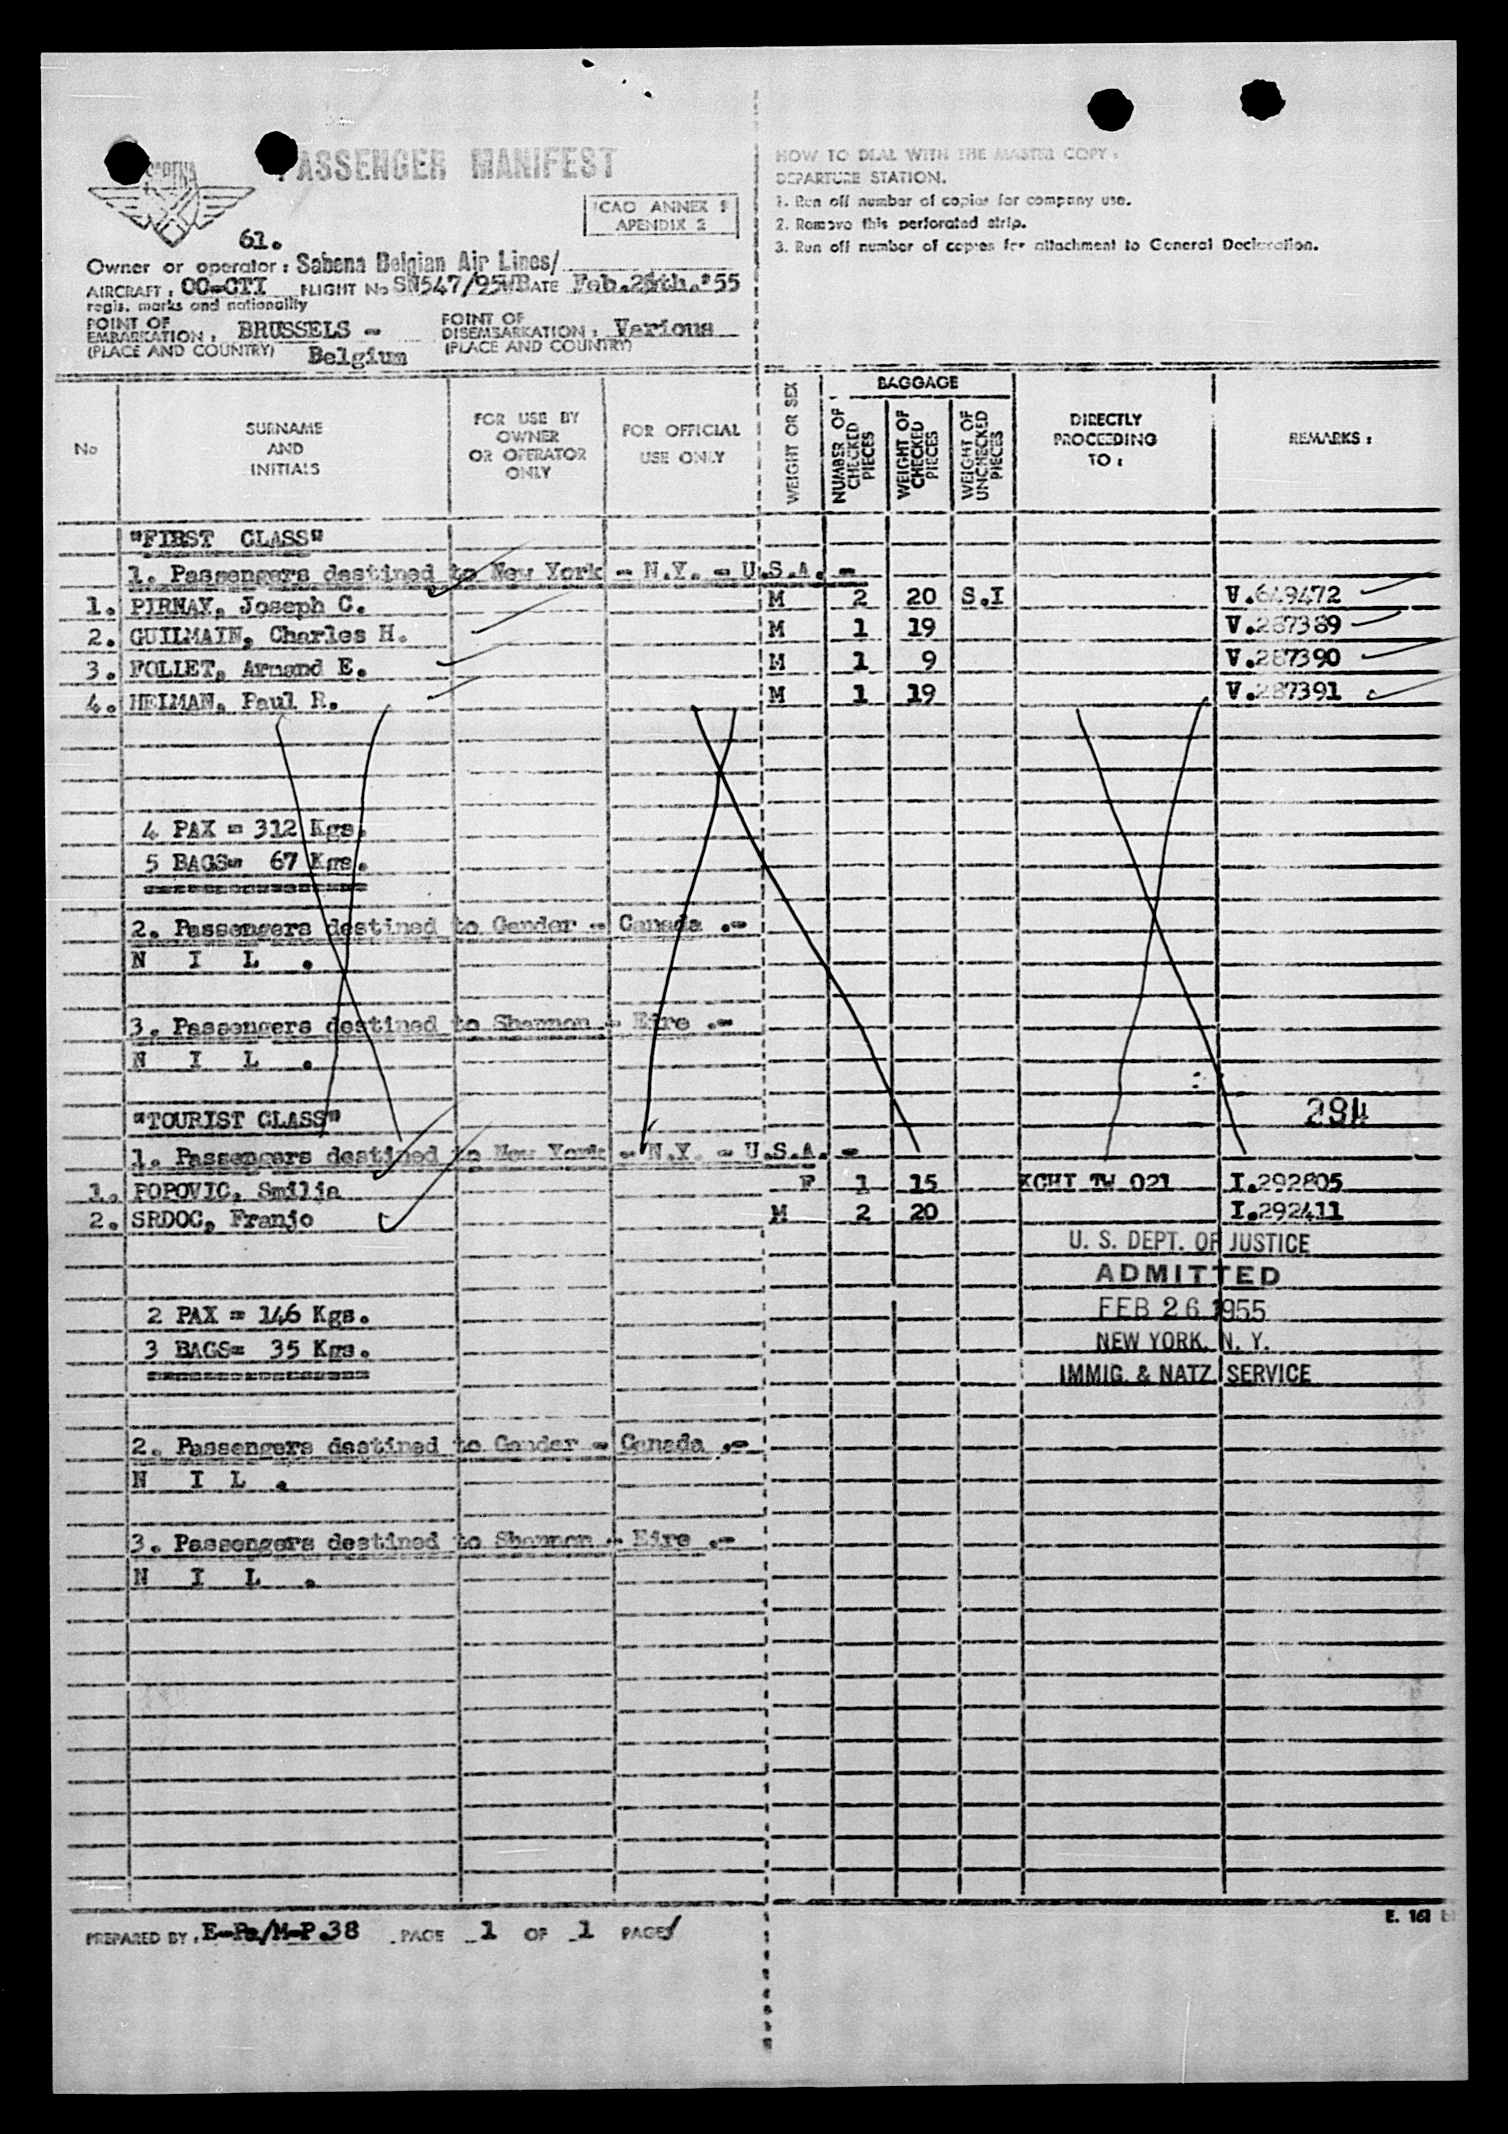 SABENA
PASSENGER MANIFEST
ICAO ANNEX 9
APENDIX 2
HOW TO DEAL WITH THE MASTER COPY :
DEPARTURE STATION.
1. Run off number of copies for company use.
2. Remove this perforated strip.
3. Run off number of copies for attachment to General Declaration.
61.
Owner or operator : Sabena Belgian Air Lines/
AIRCRAFT : OO-CTI FLIGHT No SN547/95WB DATE Feb. '55
regis. marks and nationality
POINT OF EMBARKATION : BRUSSELS - Belgium
(PLACE AND COUNTRY)
POINT OF DISEMBARKATION : Various
(PLACE AND COUNTRY)
No
SURNAME AND INITIALS
FOR USE BY OWNER OR OPERATOR ONLY
FOR OFFICIAL USE ONLY
WEIGHT OR SEX
BAGGAGE
NUMBER OF CHECKED PIECES
WEIGHT OF CHECKED PIECES
WEIGHT OF UNCHECKED PIECES
DIRECTLY PROCEEDING TO :
REMARKS :
"FIRST CLASS"
1. Passengers destined to New York - N.Y. - U.S.A. -
1. PIRNAY, Joseph C. M 2 20 S.I V.649472
2. GUILMAIN, Charles H. M 1 19 V.287389
3. FOLLET, Armand E. M 1 9 V.287390
4. HEIMAN, Paul R. M 1 19 V.287391
4 PAX = 312 Kgs.
5 BAGS= 67 Kgs.
2. Passengers destined to Gander - Canada .-
N I L .
3. Passengers destined to Shannon - Eire .-
N I L .
294
"TOURIST CLASS"
1. Passengers destined to New York - N.Y. - U.S.A. -
1. POPOVIC, Smilja F 1 15 XCHI TW 021 I.292805
2. SRDOC, Franjo M 2 20 I.292411
U. S. DEPT. OF JUSTICE
ADMITTED
FEB 26 1955
NEW YORK, N. Y.
IMMIG. & NATZ SERVICE
2 PAX = 146 Kgs.
3 BAGS= 35 Kgs.
2. Passengers destined to Gander - Canada .-
N I L .
3. Passengers destined to Shannon - Eire .-
N I L .
PREPARED BY : E-Pa/M-P.38 PAGE 1 OF 1 PAGES
E. 161